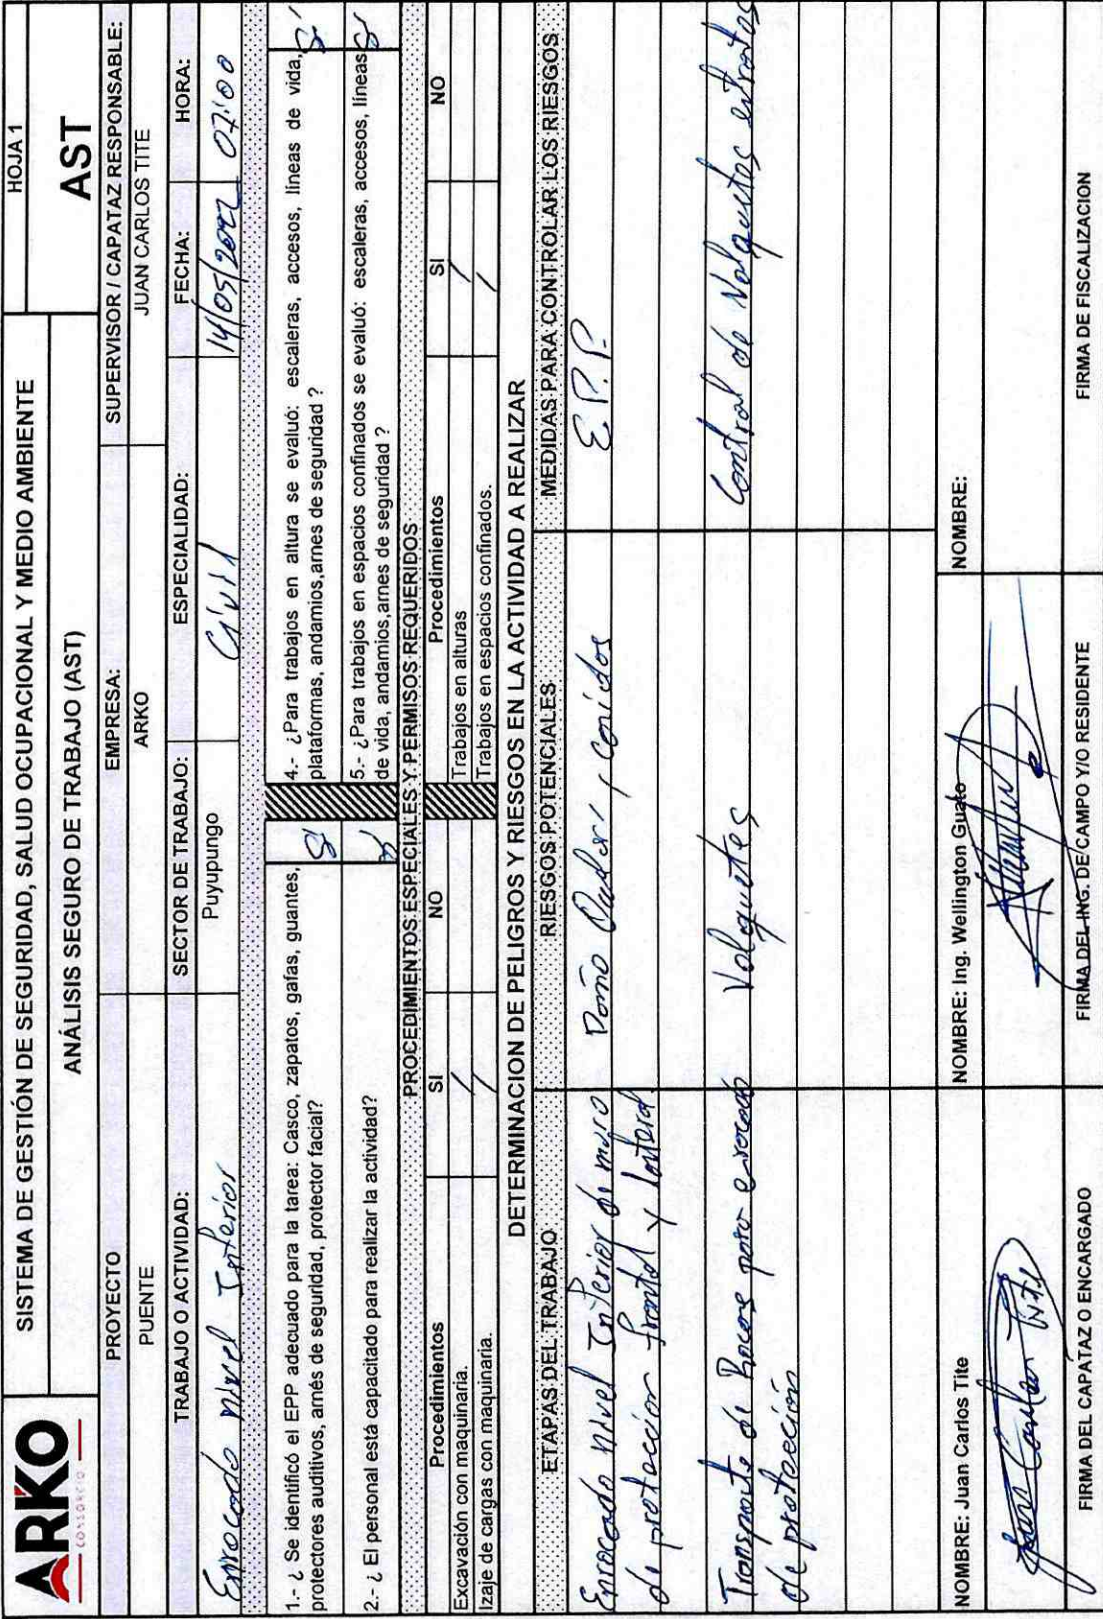 ARKO
CONSORCIO
SISTEMA DE GESTIÓN DE SEGURIDAD, SALUD OCUPACIONAL Y MEDIO AMBIENTE
HOJA 1
ANÁLISIS SEGURO DE TRABAJO (AST)
AST
PROYECTO
EMPRESA:
SUPERVISOR / CAPATAZ RESPONSABLE:
PUENTE
ARKO
JUAN CARLOS TITE
TRABAJO O ACTIVIDAD:
SECTOR DE TRABAJO:
ESPECIALIDAD:
FECHA:
HORA:
Enrocado nivel Inferior
Puyupungo
Civil
14/05/2022
07:00
1.- ¿ Se identificó el EPP adecuado para la tarea: Casco, zapatos, gafas, guantes,
protectores auditivos, arnés de seguridad, protector facial?
Si
4.- ¿Para trabajos en altura se evaluó: escaleras, accesos, líneas de vida,
plataformas, andamios,arnes de seguridad ?
Si
2.- ¿ El personal está capacitado para realizar la actividad?
Si
5.- ¿Para trabajos en espacios confinados se evaluó: escaleras, accesos, líneas
de vida, andamios,arnes de seguridad ?
Si
PROCEDIMIENTOS ESPECIALES Y PERMISOS REQUERIDOS
Procedimientos
SI
NO
Procedimientos
SI
NO
Excavación con maquinaria.
/
Trabajos en alturas
/
Izaje de cargas con maquinaria.
/
Trabajos en espacios confinados.
/
DETERMINACION DE PELIGROS Y RIESGOS EN LA ACTIVIDAD A REALIZAR
ETAPAS DEL TRABAJO
RIESGOS POTENCIALES
MEDIDAS PARA CONTROLAR LOS RIESGOS
Enrocado nivel Inferior de muro
de protección frontal y lateral
Daño
Caidas
E.P.P.
Transporte de Rocas para enrocado
de protección
Volquetes
Control de Volquetas
NOMBRE: Juan Carlos Tite
NOMBRE: Ing. Wellington Guato
NOMBRE:
Juan Carlos Tite
FIRMA DEL CAPATAZ O ENCARGADO
FIRMA DEL ING. DE CAMPO Y/O RESIDENTE
FIRMA DE FISCALIZACION